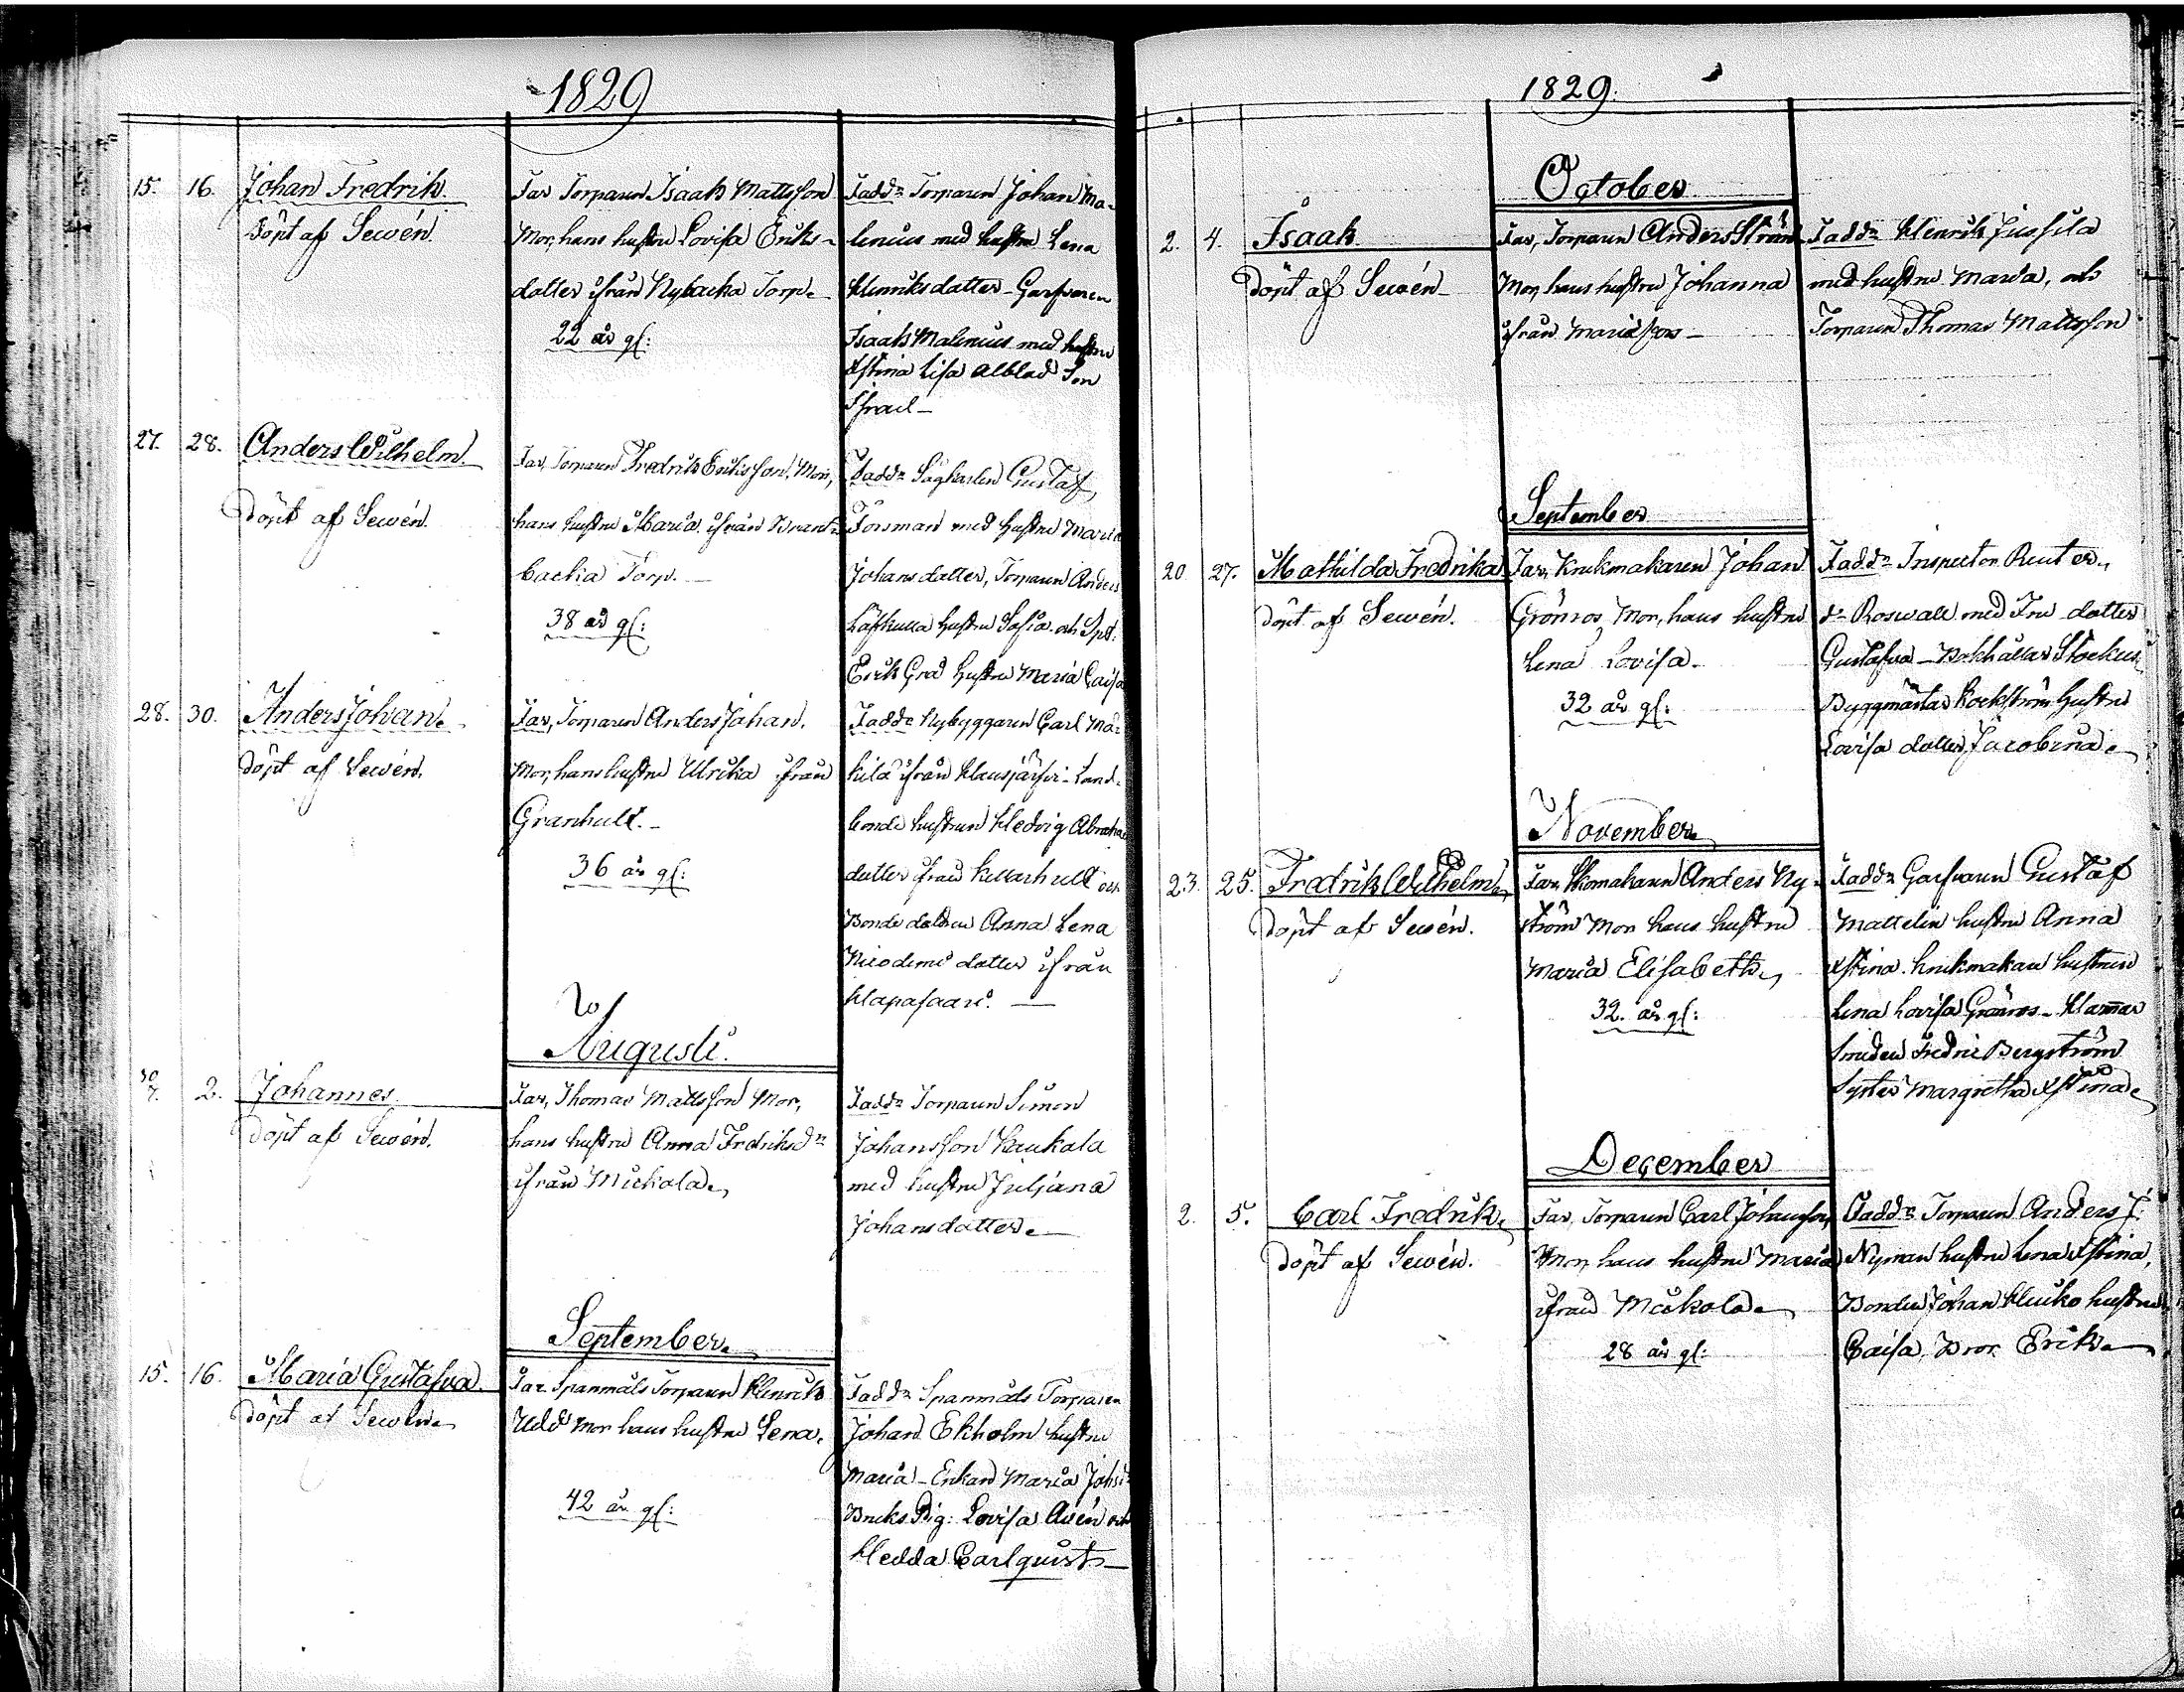 1829
15. 16. Johan Fredrik.
Döpt af Sewén.
Far Torparen Isaak Mattsson
Mor, hans hustru Lovisa Eriks-
dotter ifrån Nybacka Torp.
22 år gl:
Faddr Torparen Johan Ma-
lenius med hustru Lena
Henriksdotter - Garfvaren
Isaak Malenius med hustru
Xstina Lisa Alblad Son
Israel -
27. 28. Anders Wilhelm.
Döpt af Sewén.
Far, Torparen Fredrik Eriksson, Mor,
hans hustru Maria ifrån Brant-
backa Torp.
38 år gl:
Faddr Sågkarlen Gustaf
Forsman med hustru Maria
Johansdotter, Torparen Anders
hustru Sofia och
Erik hustru Maria Caisa
28. 30. Anders Johan.
Döpt af Sewén.
Far, Torparen Anders Johan.
Mor, hans hustru Ulrika ifrån
Granhult.
36 år gl:
Faddr Nybyggaren Carl Mä-
kilä ifrån Klausjärfvi - Land-
bonde hustrun Hedvig Abraha
dotter ifrån Killarhult och
Bonde dottren Anna Lena
Nicodemi dotter ifrån
Hapasaari. -
Augusti.
30/7. 2. Johannes.
Döpt af Sewén.
Far, Thomas Mattsson Mor,
hans hustru Anna Fredriksdr
ifrån Mickola
Faddr Torparen Simon
Johansson Kaukola
med hustru Juliana
Johansdotter.
September.
15. 16. Maria Gustafva.
Döpt af Sewén.
Far Spanmåls Torparen Henrik
Udd Mor hans hustru Lena.
42 år gl:
Faddr Spanmåls Torparen
Johan Ekholm hustru
Maria - Enkan Maria Johsdr
Bruks Pig: Lovisa Avén och
Hedda Carlquist -
1829.
October
2. 4. Isaak
Döpt af Sewén -
Far, Torparen Anders Ström
Mor, hans hustru Johanna
ifrån Mariæfors -
Faddr Henrik Jussila
med hustru Maria, och
Torparen Thomas Mattsson
September
20 27. Mathilda Fredrika
Döpt af Sewén.
Far, Krukmakaren Johan
Grönroos, Mor, hans hustru
Lena Lovisa.
32 år gl:
Faddr Inspector Reuter,
dr Roswall med Fru dotter
Gustafva - Bokhållar
Byggmästar Rockström hustru
Lovisa dotter Jacobina.
November
23. 25. Fredrik Wilhelm
Döpt af Sewén.
Far, Skomakaren Anders Ny-
ström Mor hans hustru
Maria Elisabeth,
32. år gl:
Faddr Garfvaren Gustaf
Mattelin hustru Anna
Xstina. Krukmakare hustrun
Lena Lovisa Grönroos - Hammar
Smeden Fredric Bergström
Syster Margretha Xstina
December
2. 5. Carl Fredrik.
Döpt af Sewén.
Far, Torparen Carl Johansson,
Mor, hans hustru Maria
ifrån Mickola
28 år gl:
Faddr Torparen Anders J:
Nyman hustru Lena Xstina,
Bonden Johan hustru
Caisa, Bror Erik.